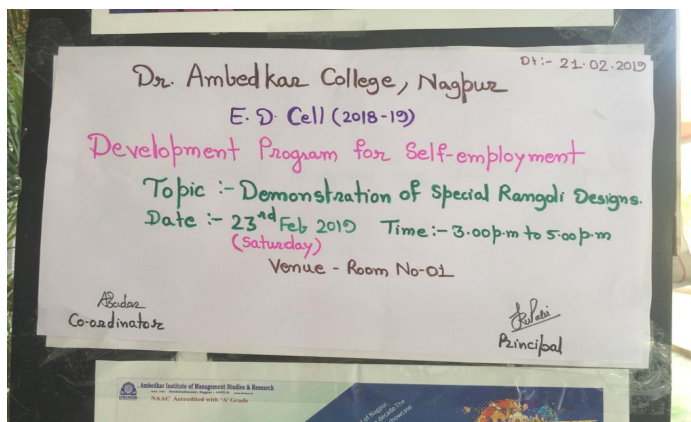 Dt:- 21.02.2019
Dr. Ambedkar College, Nagpur
E.D. Cell (2018-19)
Development Program for Self-employment
Topic :- Demonstration of Special Rangoli Designs.
Date :- 23nd Feb 2019 Time:- 3.00p.m to 5.00p.m
(Saturday)
Venue - Room No-01
Co-ordinator
Principal
Ambedkar Institute of Management Studies & Research
NAAC Accredited with 'A' Grade
of Nagpur,
decade. The
showcase